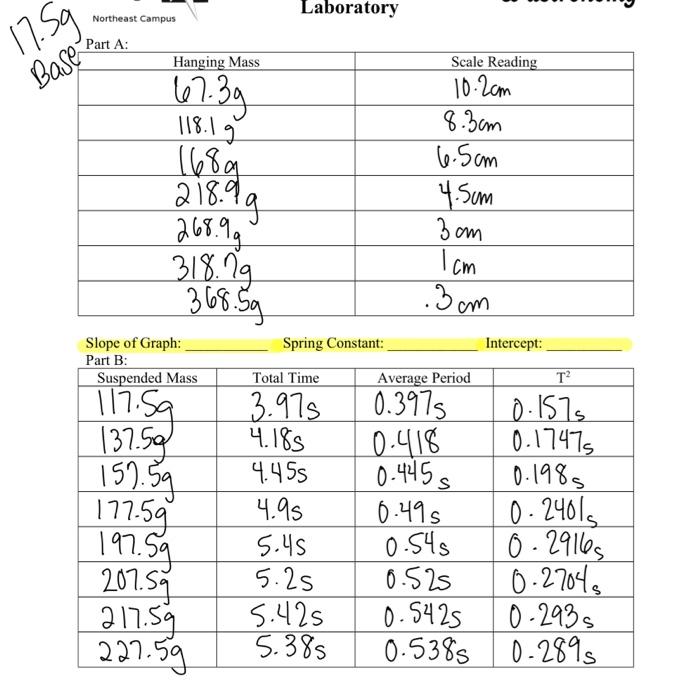 Laboratory
17.5g
Base
Northeast Campus
Part A:
Hanging Mass Scale Reading
67.3g 10.2cm
118.1g 8.3cm
168g 6.5cm
218.9g 4.5cm
268.9g 3cm
318.7g 1cm
368.5g .3cm
Slope of Graph: __________ Spring Constant: __________ Intercept: __________
Part B:
Suspended Mass Total Time Average Period T²
117.5g 3.97s 0.397s 0.157s
137.5g 4.18s 0.418 0.1747s
157.5g 4.45s 0.445s 0.198s
177.5g 4.9s 0.49s 0.2401s
197.5g 5.4s 0.54s 0.2916s
207.5g 5.2s 0.52s 0.2704s
217.5g 5.42s 0.542s 0.293s
227.5g 5.38s 0.538s 0.289s